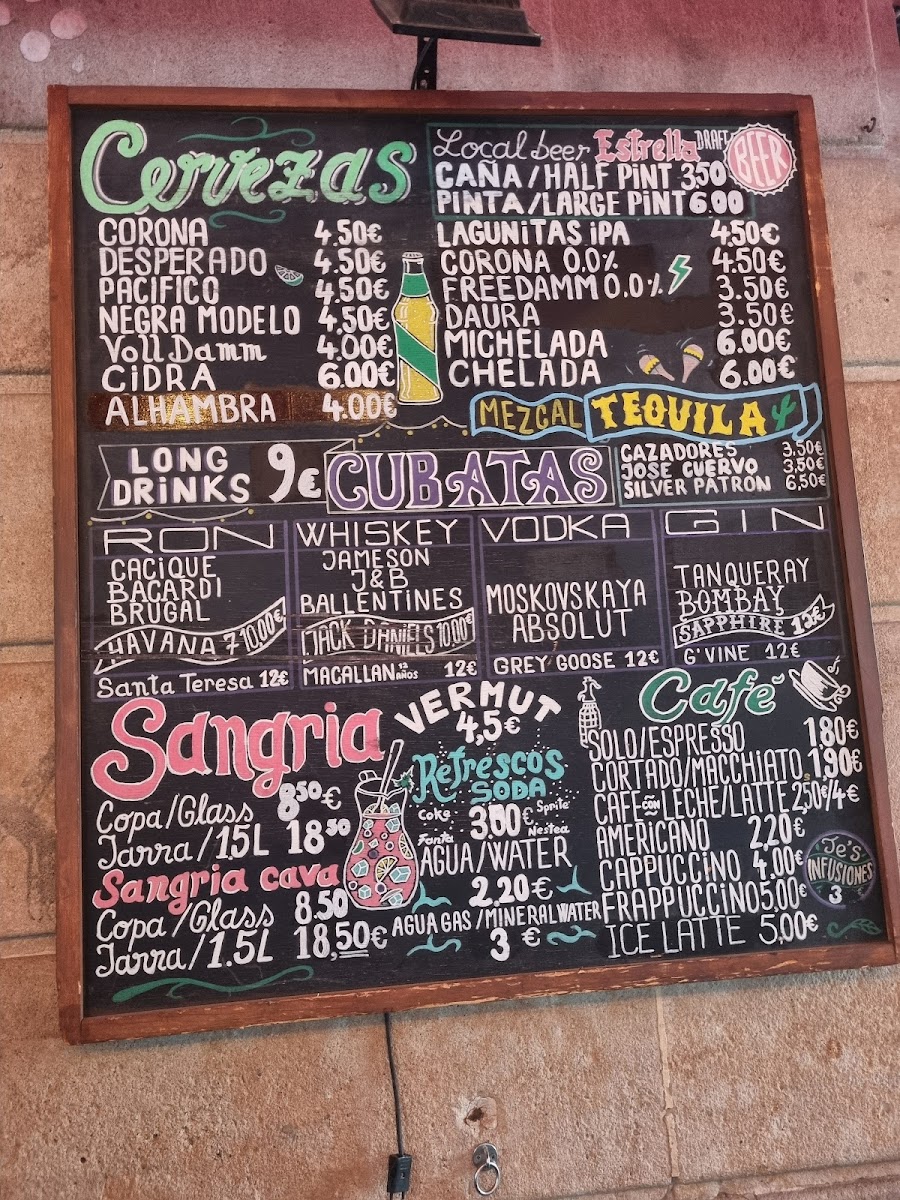 Cervezas
CORONA 4.50€
DESPERADO 4.50€
PACIFICO 4.50€
NEGRA MODELO 4,50€
Voll Damm 4.00€
CIDRA 6.00€
ALHAMBRA 4.00€
Local beer Estrella DRAFT BEER
CAÑA/HALF PINT 3.50
PINTA/LARGE PINT 6.00
LAGUNITAS IPA 4.50€
CORONA 0.0% 4.50€
FREEDAMM 0.0% 3.50€
DAURA 3.50€
MICHELADA 6.00€
CHELADA 6.00€
MEZCAL TEQUILA
CAZADORES 3.50€
JOSE CUERVO 3,50€
SILVER PATRON 6,50€
LONG DRINKS 9€
CUBATAS
RON
CACIQUE
BACARDI
BRUGAL
HAVANA 7 10.00€
Santa Teresa 12€
WHISKEY
JAMESON
J&B
BALLENTINES
JACK DANIELS 10.00€
MACALLAN 12 AÑOS 12€
VODKA
MOSKOVSKAYA
ABSOLUT
GREY GOOSE 12€
GIN
TANQUERAY
BOMBAY
SAPPHIRE 12€
G'VINE 12€
Sangria
Copa/Glass 8.50€
Jarra/1.5L 18.50
Sangria cava
Copa/Glass 8.50
Jarra/1.5L 18,50€
VERMUT
4,5€
Refrescos
SODA
Coke 3.00€ Sprite
Fanta Nestea
AGUA/WATER
2.20€
AGUA GAS/MINERAL WATER
3€
Café
SOLO/ESPRESSO 1,80€
CORTADO/MACCHIATO 1,90€
CAFE CON LECHE/LATTE 2,50€/4€
AMERICANO 2,20€
CAPPUCCINO 4,00€
FRAPPUCCINO 5,00€
ICE LATTE 5,00€
Te's
INFUSIONES
3